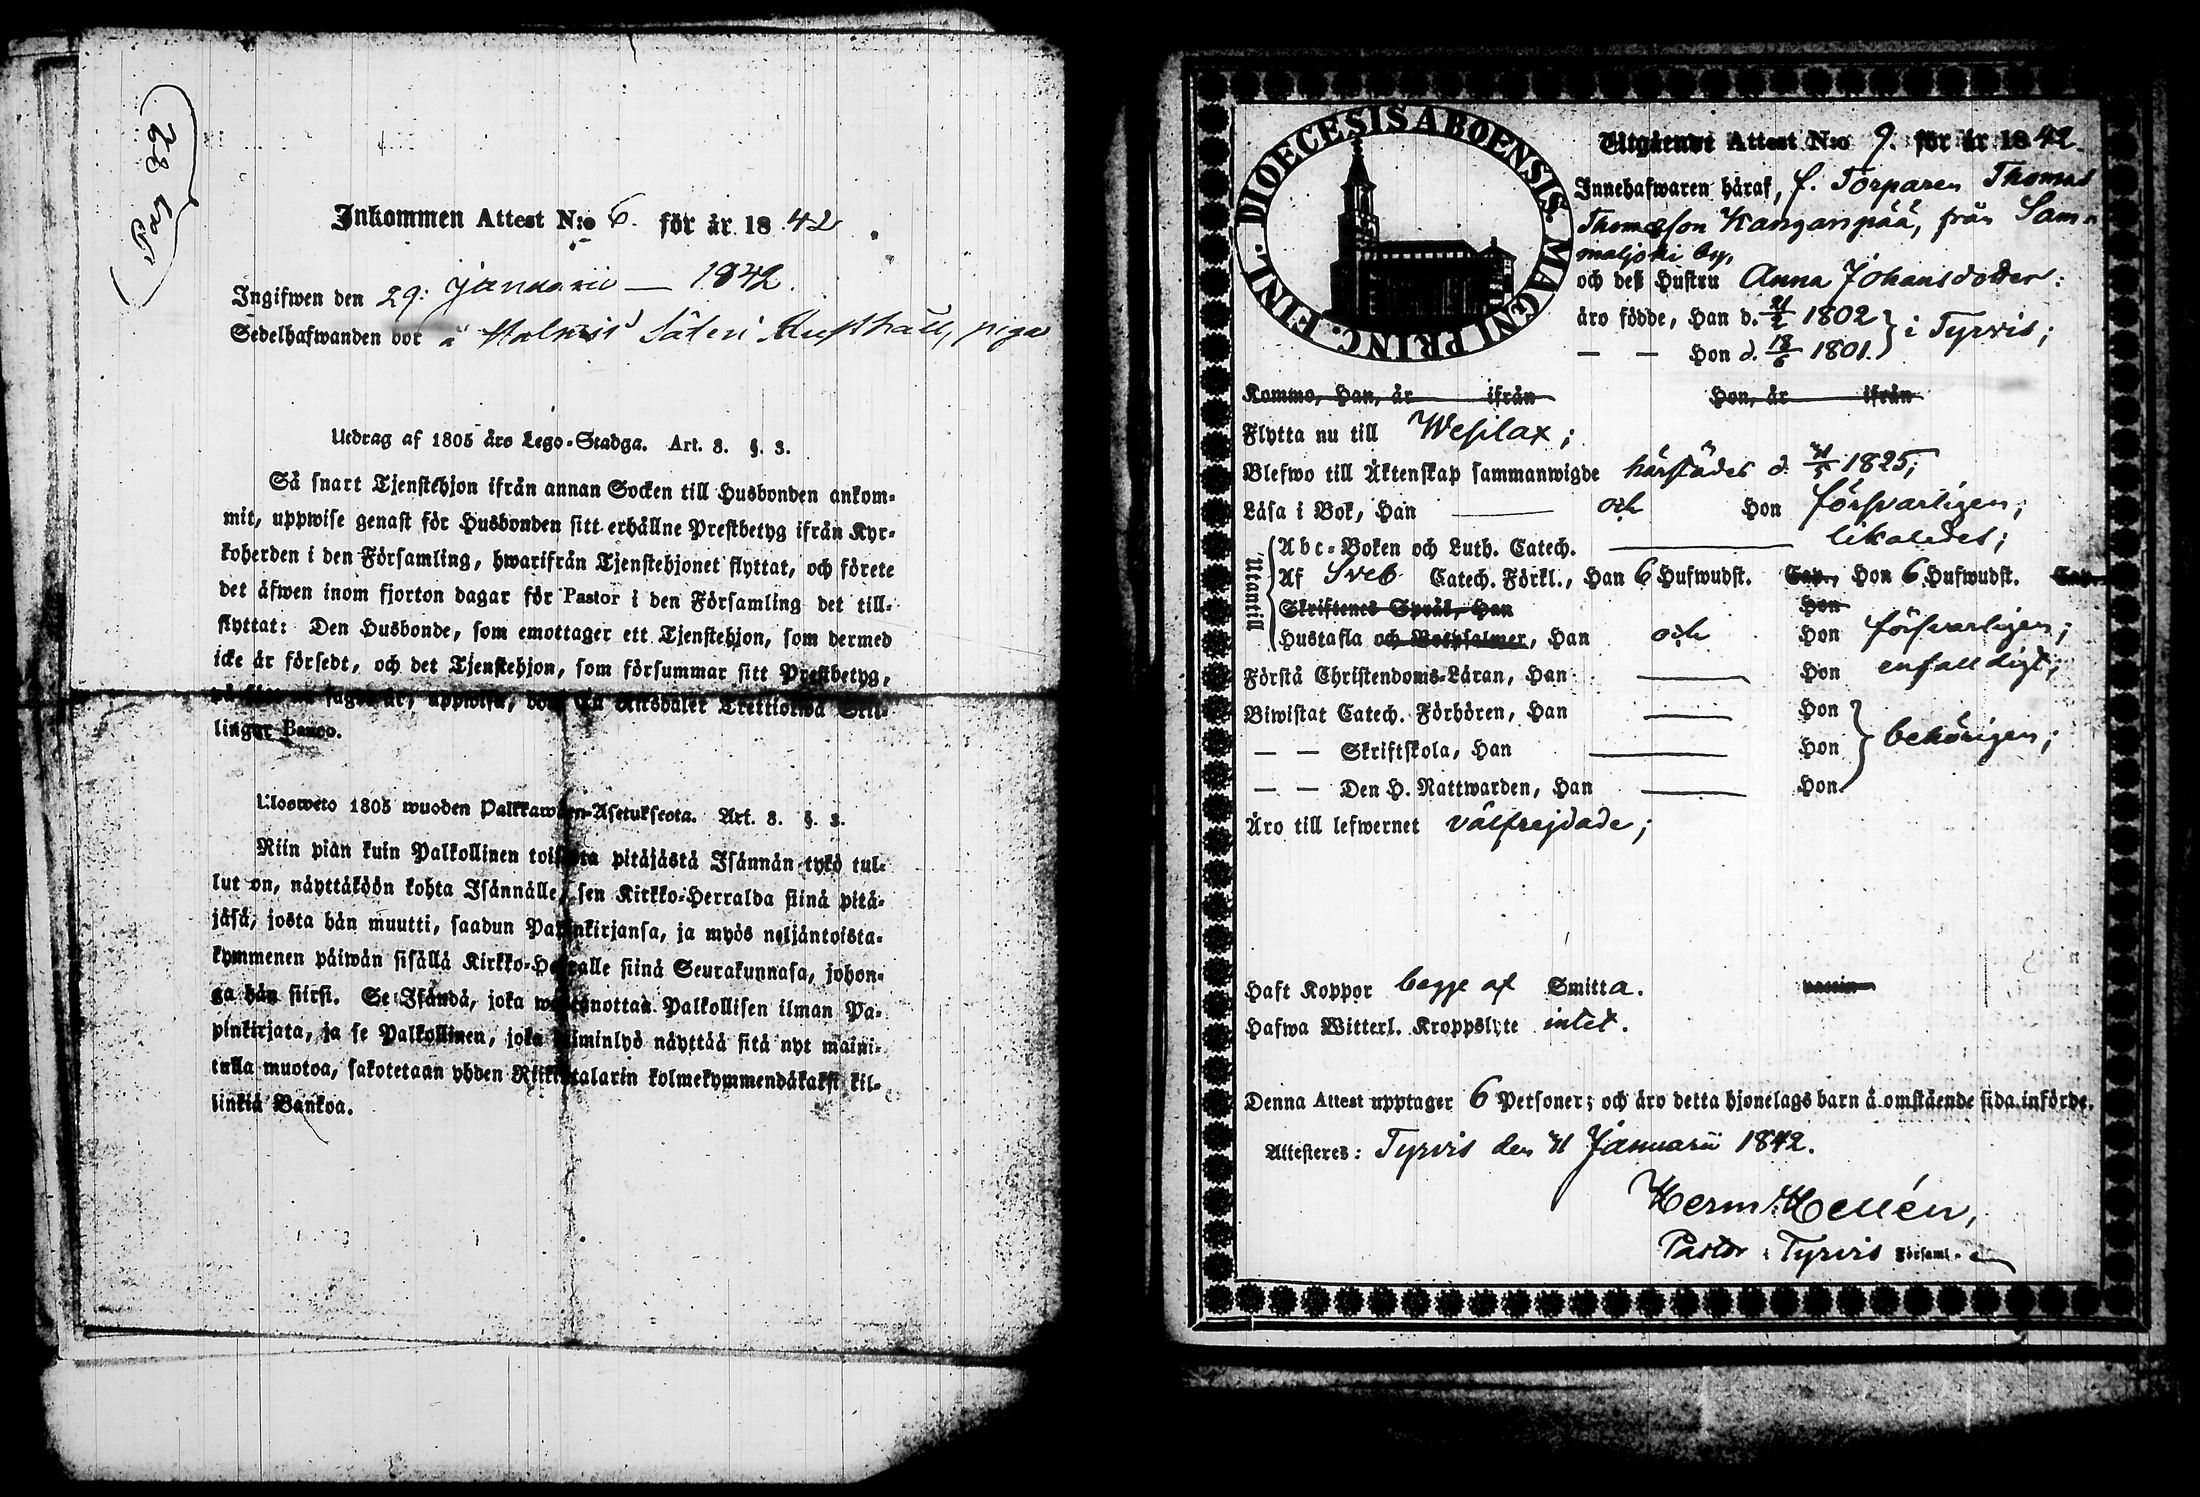 Inkommen Attest N:o 6. för år 18 42
Ingifwen den 29: Januarii — 1842.
Sedelhafwanden bor å Säteri Rusthåll, piga
Utdrag af 1805 års Lego-Stadga. Art. 3. §. 3.
Så snart Tjenstehjon ifrån annan Socken till Husbonden ankom-
mit, uppwise genast för Husbonden sitt erhållne Prestbetyg ifrån Kyr-
koherden i den Församling, hwarifrån Tjenstehjonet flyttat, och förete
det äfwen inom fjorton dagar för Pastor i den Församling det till-
flyttat: Den Husbonde, som emottager ett Tjenstehjon, som dermed
icke är försedt, och det Tjenstehjon, som försummar sitt Prestbetyg,
på sätt nu sagdt är, uppwisa, bote En Riksdaler Trettiotwå Skil-
lingar Banco.
Ulosweto 1805 wuoden Palkkawäen-Asetuksesta. Art. 3. §. 3.
Niin pian kuin Palkollinen toisesta pitäjästä Isännän tykö tul-
lut on, näyttäköön kohta Isännälle, sen Kirkko-Herralda siinä pitä-
jäsä, josta hän muutti, saadun Papinkirjansa, ja myös neljäntoista-
kymmenen päiwän sisällä Kirkko-Herralle siinä Seurakunnasa, johon-
ga hän siirsi. Se Isändä, joka wastanottaa Palkollisen ilman Pa-
pinkirjata, ja se Palkollinen, joka laiminlyö näyttää sitä nyt maini-
tulla muotoa, sakotetaan yhden Riikintalarin kolmekymmendäkaksi kil-
linkiä Bankoa.
DIOECESIS ABOENSIS MAGNI PRINC. FINL.
Utgående Attest N:o 9. för år 18 42.
Innehafwaren häraf, f. Torparen Thomas
Thomasson Kanganpää, från Sam-
maljoki by,
och deß Hustru Anna Johansdotter:
äro födde, Han d. 21/2 1802 } i Tyrvis;
— — Hon d. 18/6 1801.
Kommo, Han, år ifrån Hon, år ifrån
Flytta nu till Wesilax;
Blefwo till Äktenskap sammanwigde härstädes d. 1825;
Läsa i Bok, Han —— och Hon försvarligen;
Utantill
Abc-Boken och Luth. Catech. —— likaledes;
Af Sveb. Catech. Förkl., Han 6 Hufwudst. Cap., Hon 6 Hufwudst. Cap.
Skriftenes Språk, Han Hon
Hustafla och Botpsalmer, Han och Hon försvarligen;
Förstå Christendoms-Läran, Han —— Hon enfalldigt;
Biwistat Catech. Förhören, Han —— Hon
— — Skriftskola, Han —— Hon } behörigen;
— — Den H. Nattwarden, Han —— Hon
Äro till lefwernet välfrejdade;
Haft Koppor begge af Smitta. vaccin
Hafwa Witterl. Kroppslyte intet.
Denna Attest upptager 6 Personer; och äro detta hjonelags barn å omstående sida införde.
Attesteres: Tyrvis den 21 Januarii 1842.
Herm. Hellén,
Pastor i Tyrvis Församl.